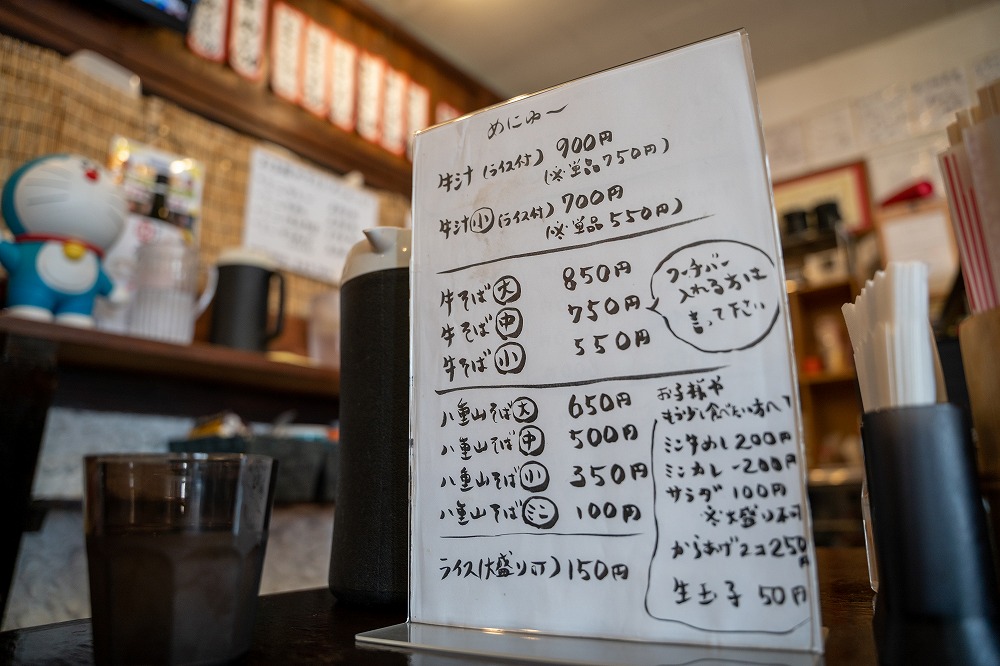 めにゅ〜
牛汁(ライス付) 900円
(※単品750円)
牛汁小(ライス付) 700円
(※単品550円)
牛そば大 850円
牛そば中 750円
牛そば小 550円
フーチバー
入れる方は
言って下さい
八重山そば大 650円
八重山そば中 500円
八重山そば小 350円
八重山そばミニ 100円
ライス(大盛り可) 150円
お子様や
もう少し食べたい方へ
ミニ牛めし 200円
ミニカレー 200円
サラダ 100円
※大盛り不可
からあげ2コ 250円
生玉子 50円